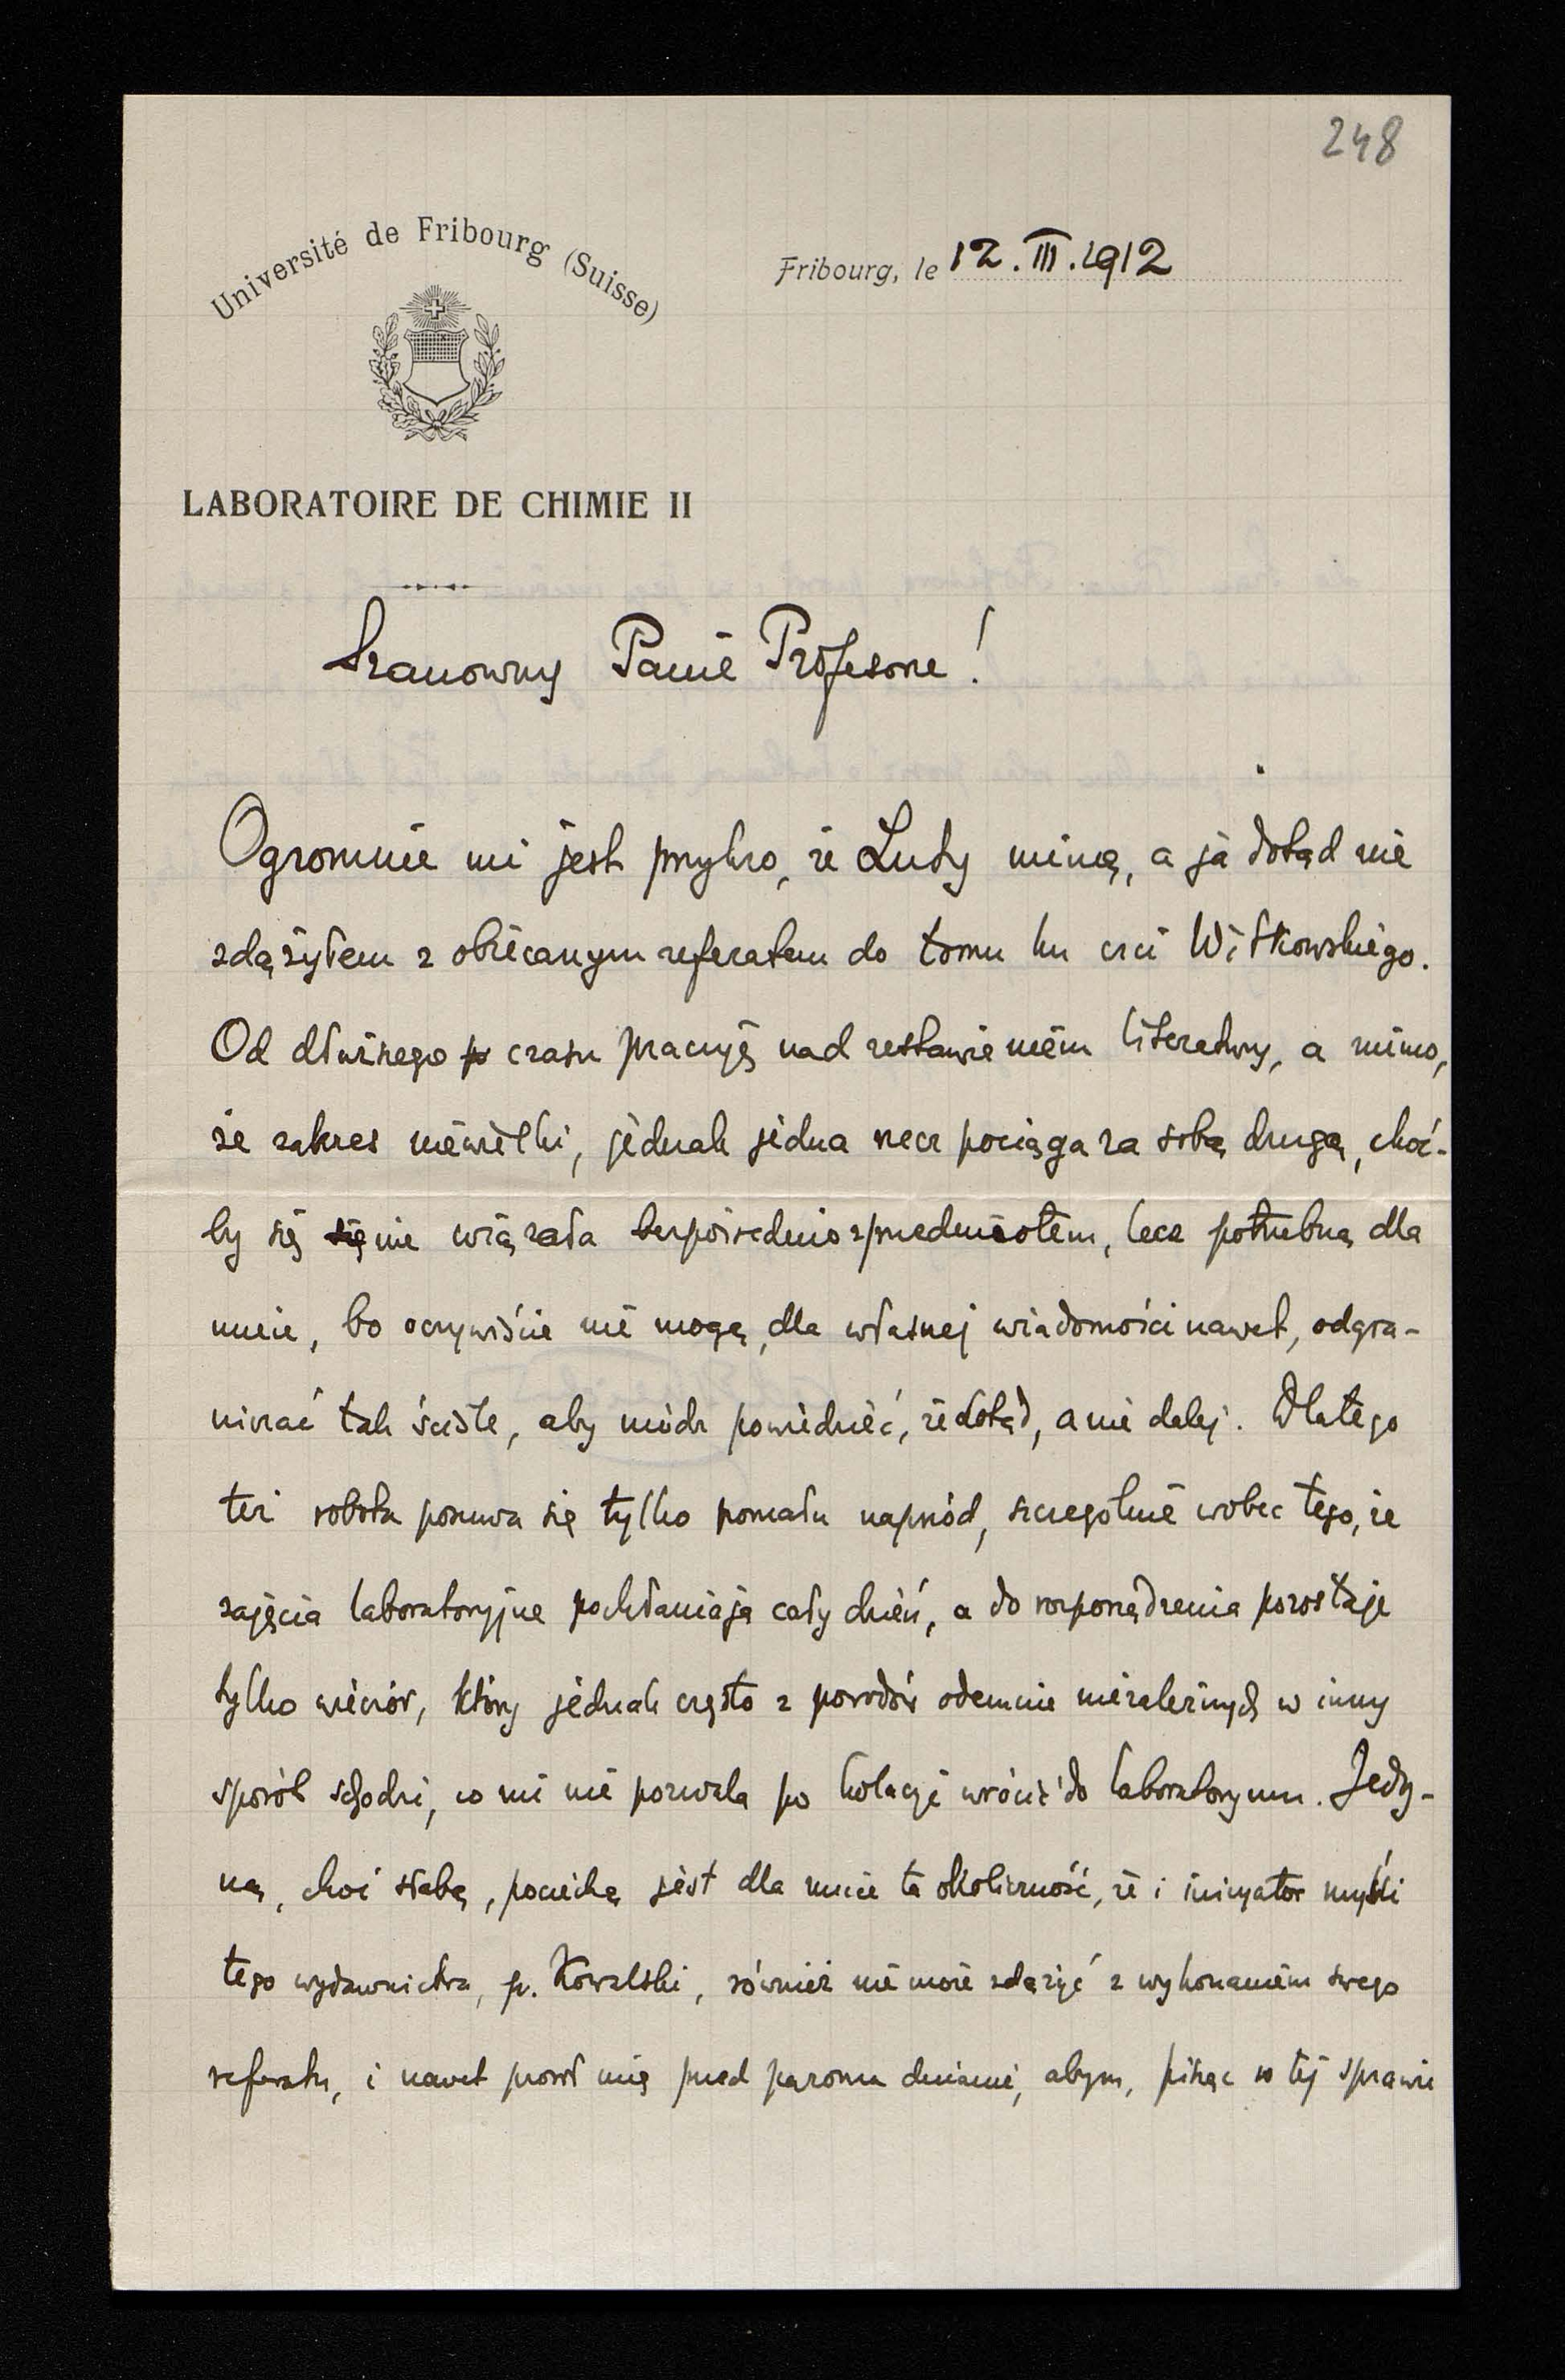 248
Université de Fribourg (Suisse)
Fribourg, le 12.III.1912
LABORATOIRE DE CHIMIE II
Szanowny Panie Profesorze!
Ogromnie mi jest przykro, że Luty miną, a ja dotąd nie
zdążyłem z obiecanym referatem do tomu ku czci Witkowskiego.
Od dłuższego czasu pracuję nad zestawieniem literatury, a mimo,
że zakres niewielki, jednak jedna rzecz pociąga za sobą drugą, choć-
by się nie wiązała bezpośrednio z przedmiotem, lecz potrzebną dla
mnie, bo oczywiście nie mogę, dla własnej wiadomości nawet, odgra-
niczać tak ściśle, aby módz powiedzieć, że dotąd, a nie dalej. Dlatego
też robota posuwa się tylko pomału naprzód, szczególnie wobec tego, że
zajęcia laboratoryjne pochłaniają cały dzień, a do rozporządzenia pozostaje
tylko wieczór, który jednak często z powodów odemnie niezależnych w inny
sposób schodzi, co mi nie pozwala po kolacyi wrócić do laboratoryum. Jedy-
ną, choć słabą, pociechą jest dla mnie ta okoliczność, że i inicyator myśli
tego wydawnictwa, p. Kowalski, również nie może zdążyć z wykonaniem swego
referatu, i nawet prosił mię przed paroma dniami, abym, pisząc w tej sprawie